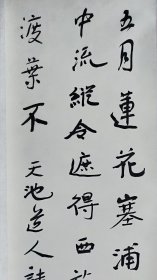 五月蓮花塞浦
中流縱令遮得西
渡葉不 天池道人詩